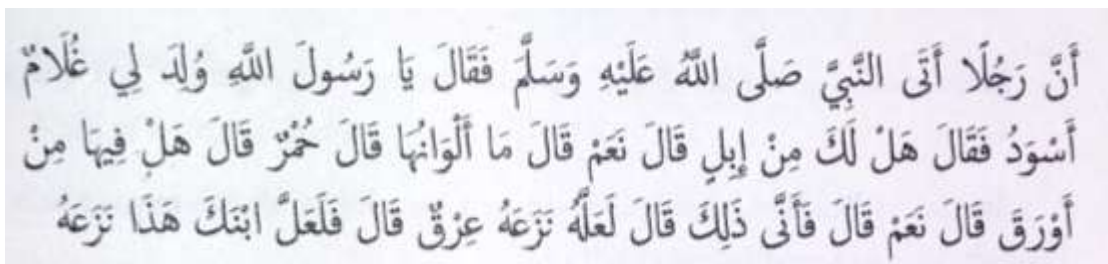 أَنَّ رَجُلًا أَتَى النَّبِيَّ صَلَّى اللَّهُ عَلَيْهِ وَسَلَّمَ فَقَالَ يَا رَسُولَ اللَّهِ وُلِدَ لِي غُلَامٌ
أَسْوَدُ فَقَالَ هَلْ لَكَ مِنْ إِبِلٍ قَالَ نَعَمْ قَالَ مَا أَلْوَانُهَا قَالَ حُمْرٌ قَالَ هَلْ فِيهَا مِنْ
أَوْرَقَ قَالَ نَعَمْ قَالَ فَأَنَّى ذَلِكَ قَالَ لَعَلَّهُ نَزَعَهُ عِرْقٌ قَالَ فَلَعَلَّ ابْنَكَ هَذَا نَزَعَهُ